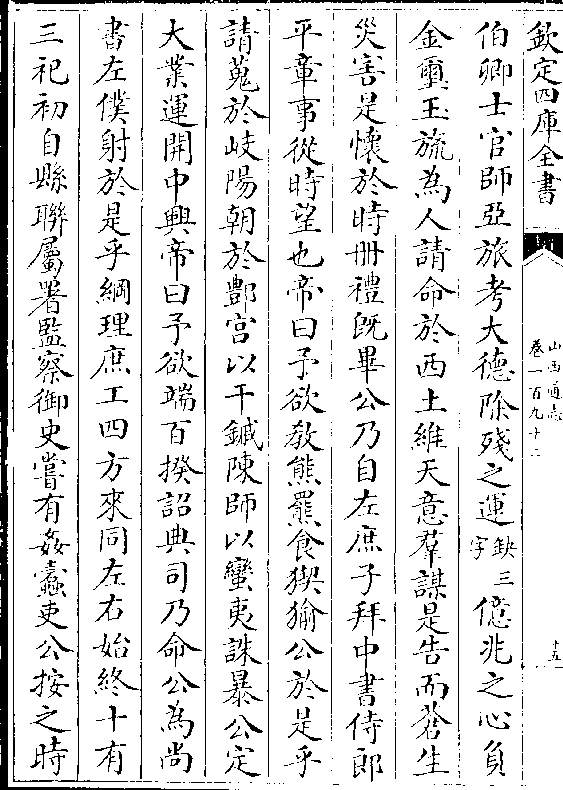 欽定四庫全書
山西通志
卷一百九十二
十五
伯卿士官師亞旅考大德除殘之運缺三字億兆之心負
金璽玉旒為人請命於西土維天意羣謀是告而蒼生
災害是懷於時冊禮既畢公乃自左庶子拜中書侍郎
平章事從時望也帝曰予欲敎熊羆食猰㺄公於是乎
請蒐於岐陽朝於酆宮以干鏚陳師以蠻夷誅暴公定
大業運開中興帝曰予欲端百揆詔典司乃命公為尚
書左僕射於是乎綱理庶工四方來同左右始終十有
三祀初自縣聯屬署監察御史嘗有姦蠹吏公按之時